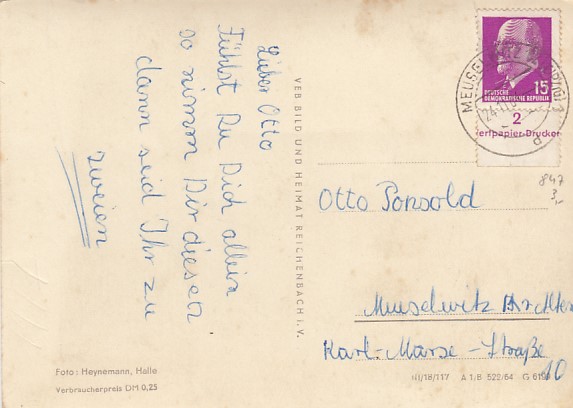 Lieber Otto
Fühlst Du Dich allein
so nimm Dir diesen
dann seid Ihr zu
zweien
VEB BILD UND HEIMAT REICHENBACH I. V.
Foto: Heynemann, Halle
Verbraucherpreis DM 0,25
15
DEUTSCHE
DEMOKRATISCHE REPUBLIK
2
ertpapier-Drucker
847
3,-
Otto Ponsold
Meuselwitz Kr. Alten
Karl-Marx-Straße
10
A 1/B 522/64